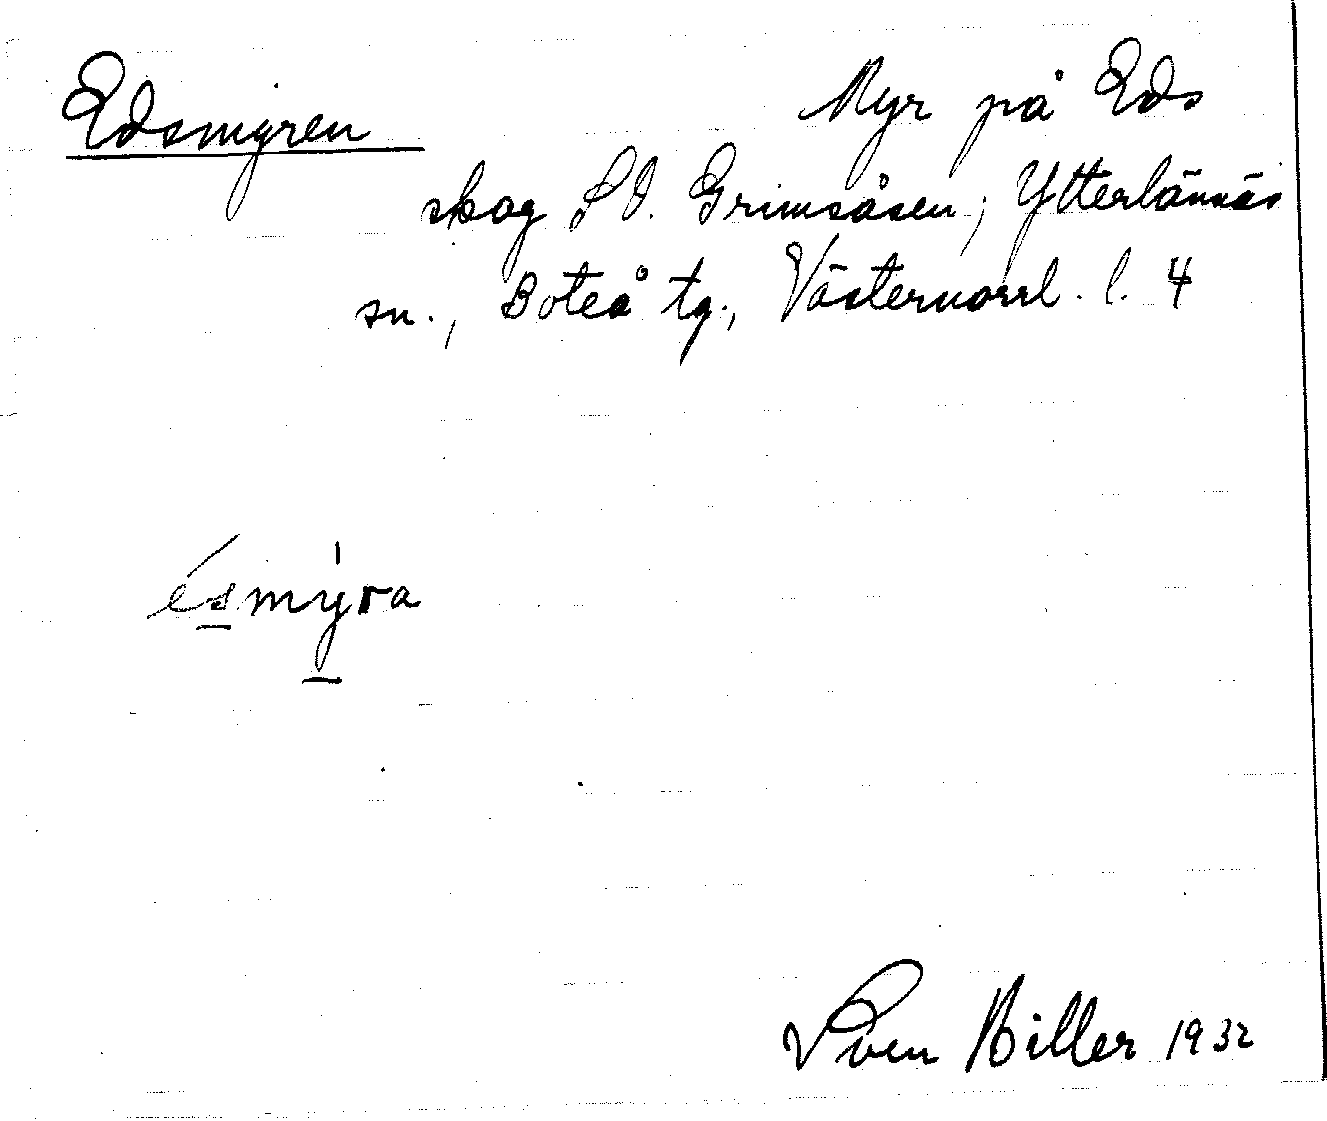 Edsmyren
Myr på Eds
skog S V. Grimsåsen, Ytterlännäs
sn., Boteå tg., Västernorrl. l. 4
ésmýra
Sven Hiller 1932